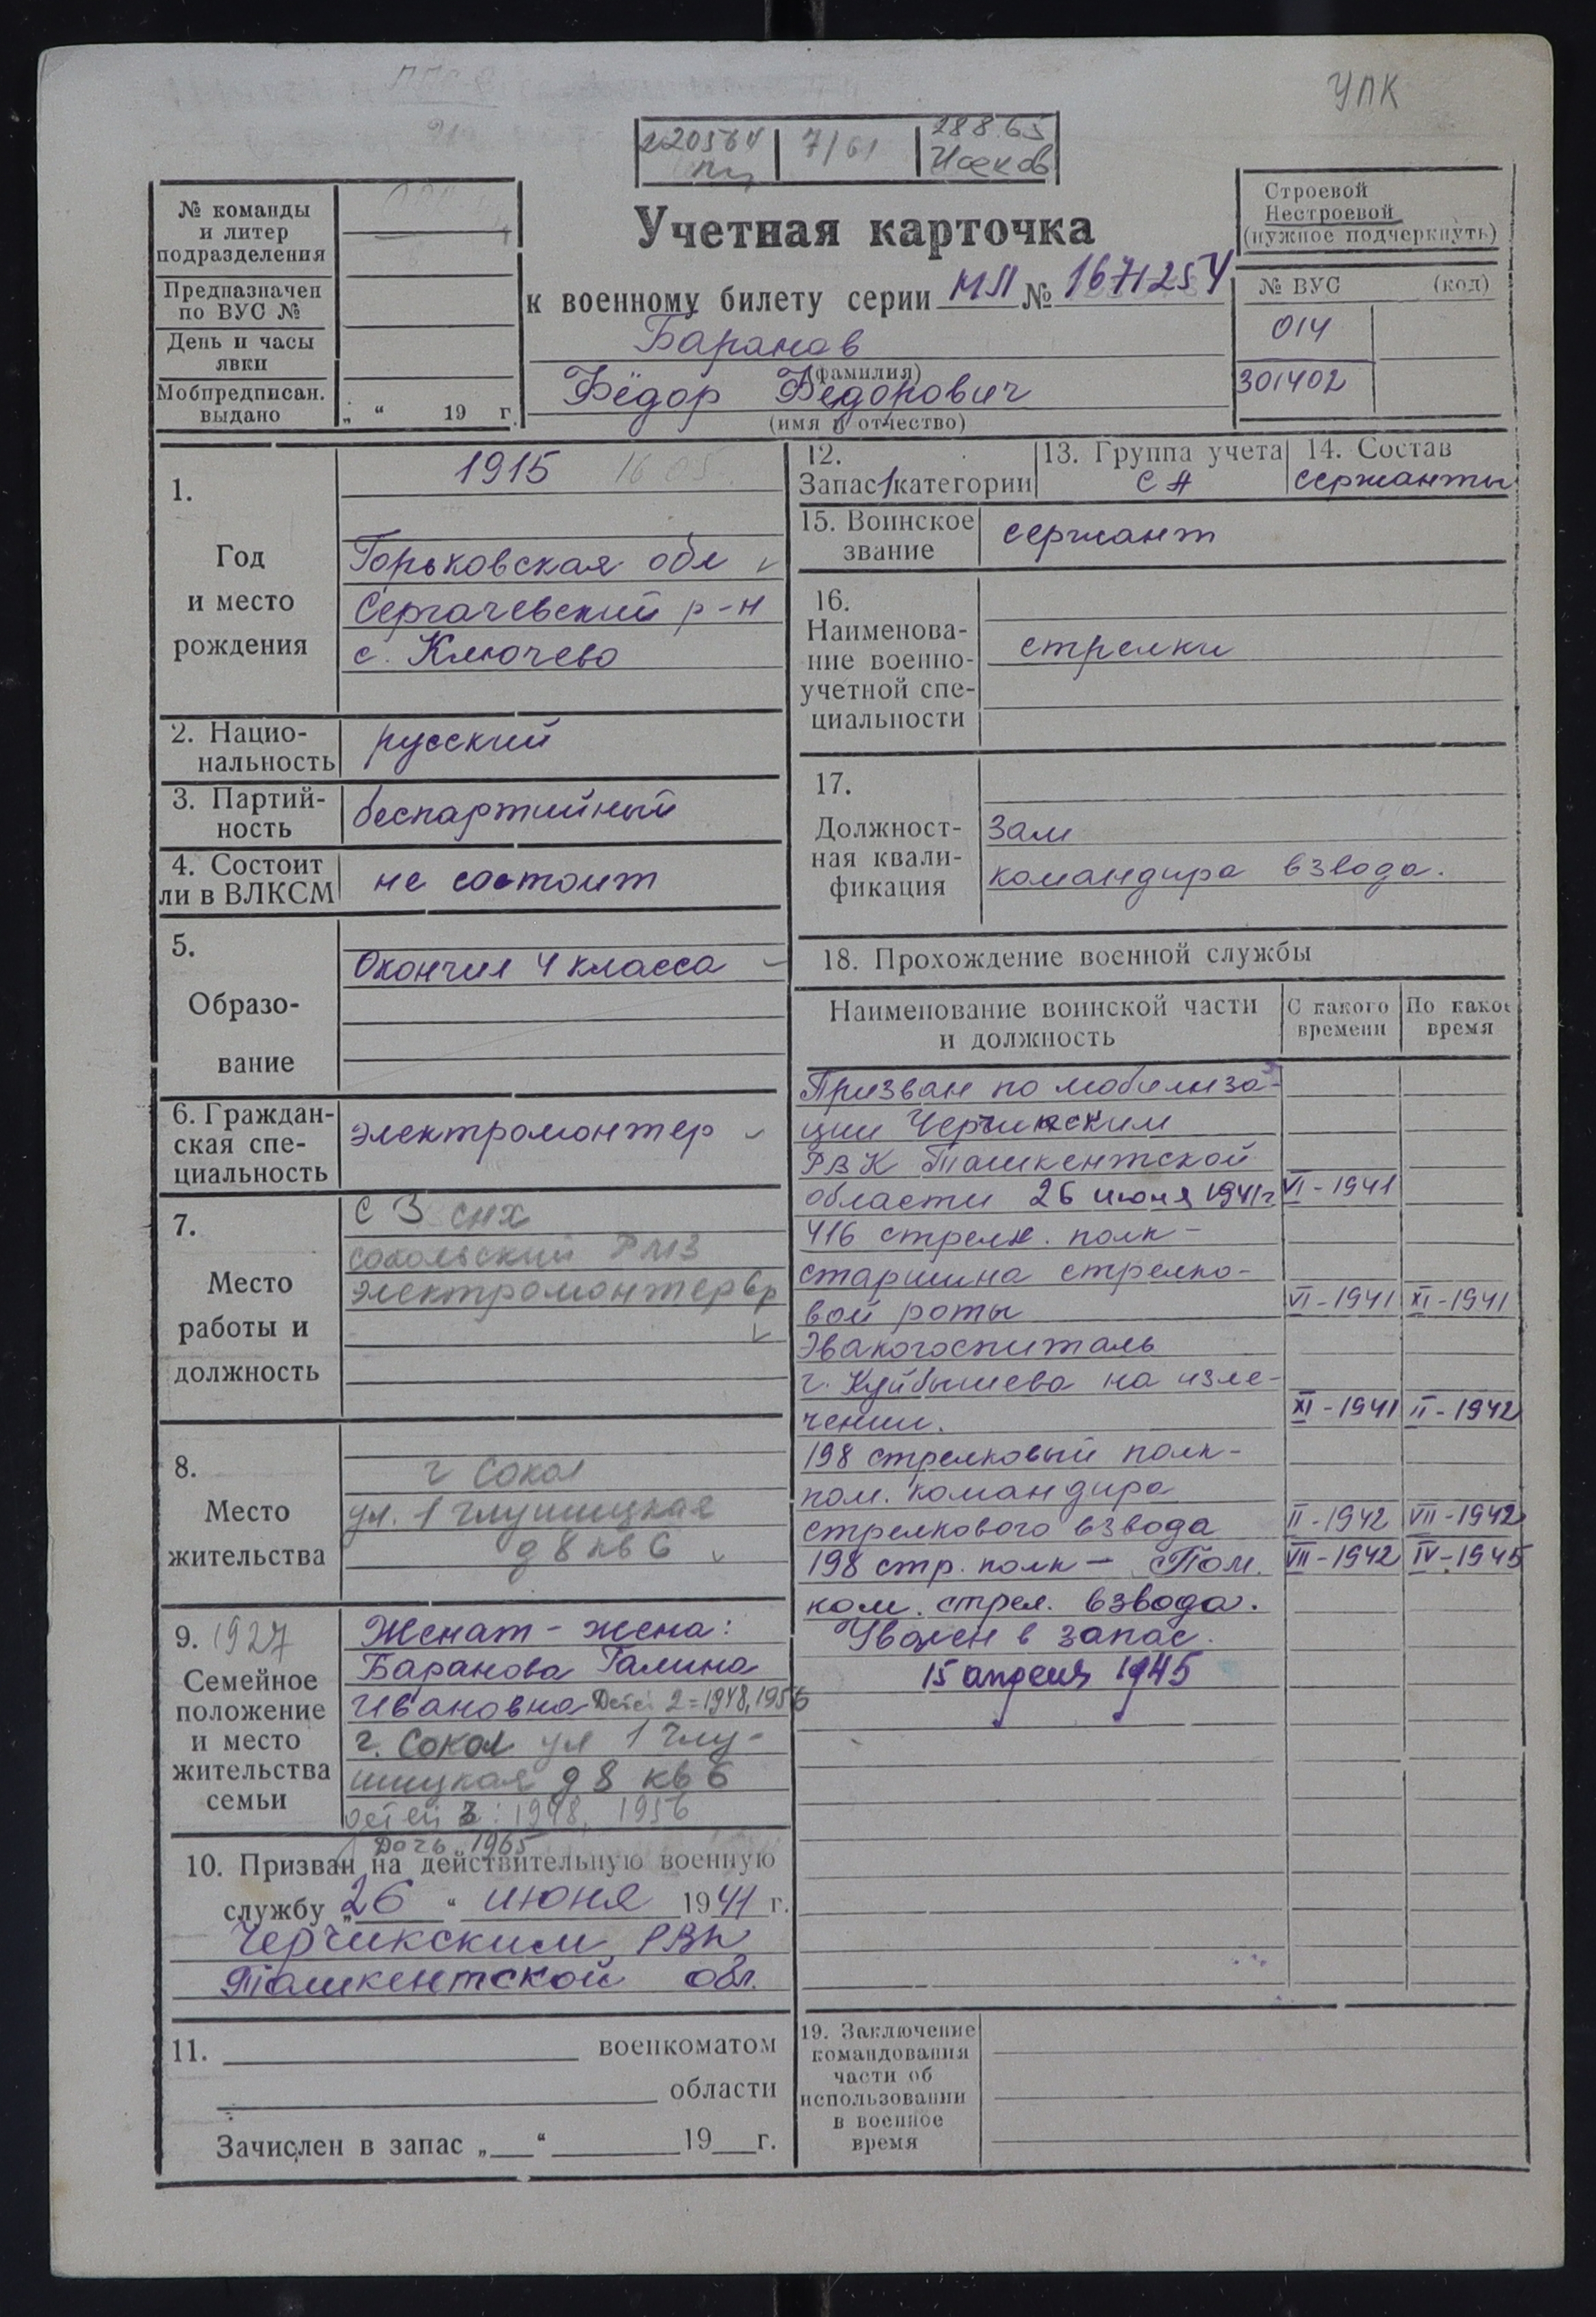 УПК
220564 | 7/61 | 288.65
Исаков
№ команды
и литер
подразделения
Предназначен
по ВУС №
День и часы
явки
Мобпредписан.
выдано
„ “ 19 г.
Учетная карточка
к военному билету серии МЛ № 1671254
Баранов
(фамилия)
Фёдор Федорович
(имя и отчество)
Строевой
Нестроевой
(нужное подчеркнуть)
№ ВУС (код)
014
301402
1.
Год
и место
рождения
1915 16 05
Горьковская обл
Сергачевский р-н
с. Ключево
2. Нацио-
нальность
русский
3. Партий-
ность
беспартийный
4. Состоит
ли в ВЛКСМ
не состоит
5.
Образо-
вание
Окончил 4 класса
6. Граждан-
ская спе-
циальность
электромонтер
7.
Место
работы и
должность
С З СНХ
Сокольский РМЗ
электромонтер 6р
8.
Место
жительства
г Сокол
ул. 1 Глушицкая
д 8 кв 6
9. 1927
Семейное
положение
и место
жительства
семьи
Женат - жена:
Баранова Галина
Ивановна Детей 2 = 1948, 1956
г. Сокол ул 1 Глу-
шицкая д 8 кв 6
детей 3: 1948, 1956
Дочь 1965
10. Призван на действительную военную
службу „26“ июня 1941 г.
Черчикским РВК
Ташкентской обл.
11. военкоматом
области
Зачислен в запас „ “ 19 г.
12.
Запас 1 категории
13. Группа учета
СА
14. Состав
сержанты
15. Воинское
звание
сержант
16.
Наименова-
ние военно-
учетной спе-
циальности
стрелки
17.
Должност-
ная квали-
фикация
Зам
командира взвода.
18. Прохождение военной службы
Наименование воинской части
и должность
С какого
времени
По какое
время
Призван по мобилиза-
ции Чирчикским
РВК Ташкентской
области 26 июня 1941г. VI - 1941
416 стрелк. полк -
старшина стрелко-
вой роты VI - 1941 XI - 1941
Эвакогоспиталь
г. Куйбышева на изле-
чении. XI - 1941 II - 1942
198 стрелковый полк -
пом. командира
стрелкового взвода II - 1942 VII - 1942
198 стр. полк - Пом. VII - 1942 IV - 1945
ком. стрел. взвода.
Уволен в запас.
15 апреля 1945
19. Заключение
командования
части об
использовании
в военное
время